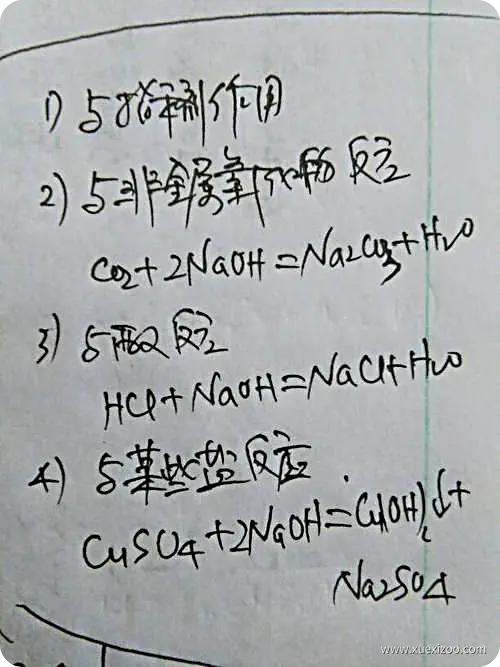 1) 与指示剂作用
2) 与非金属氧化物反应
CO2+2NaOH=Na2CO3+H2O
3) 与酸反应
HCl+NaOH=NaCl+H2O
4) 与某些盐反应
CuSO4+2NaOH=Cu(OH)2↓+
Na2SO4
www.xuexizoo.com